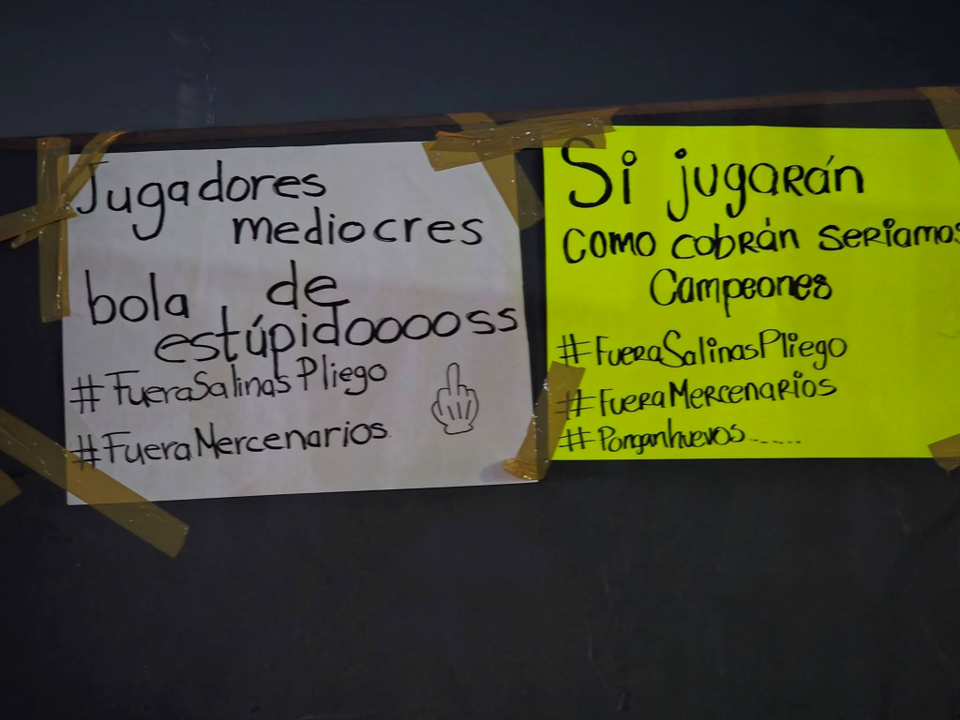 Jugadores
mediocres
bola de
estúpidooooss
#FueraSalinasPliego
#FueraMercenarios
Si jugarán
como cobrán seriamos
Campeones
#FueraSalinasPliego
#FueraMercenarios
#Ponganhuevos.......